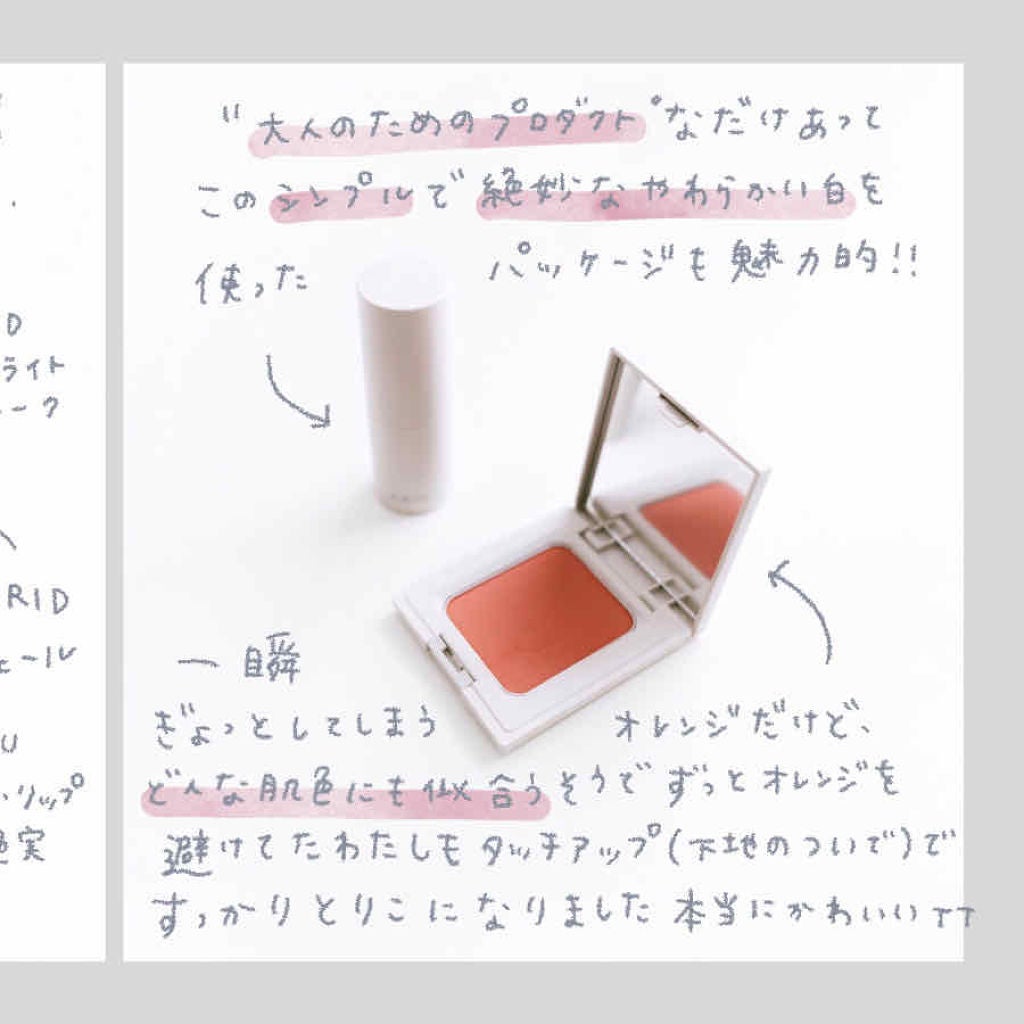 "大人のためのプロダクト"なだけあって
このシンプルで 絶妙なやわらかい白を
使った パッケージも魅力的!!
一瞬
ぎょっとしてしまう オレンジだけど、
どんな肌色にも似合うそうで ずっとオレンジを
避けてたわたしもタッチアップ(下地のついで)で
すっかりとりこになりました 本当にかわいいTT
D
ライト
ーク
RID
ェール
U
リップ
実